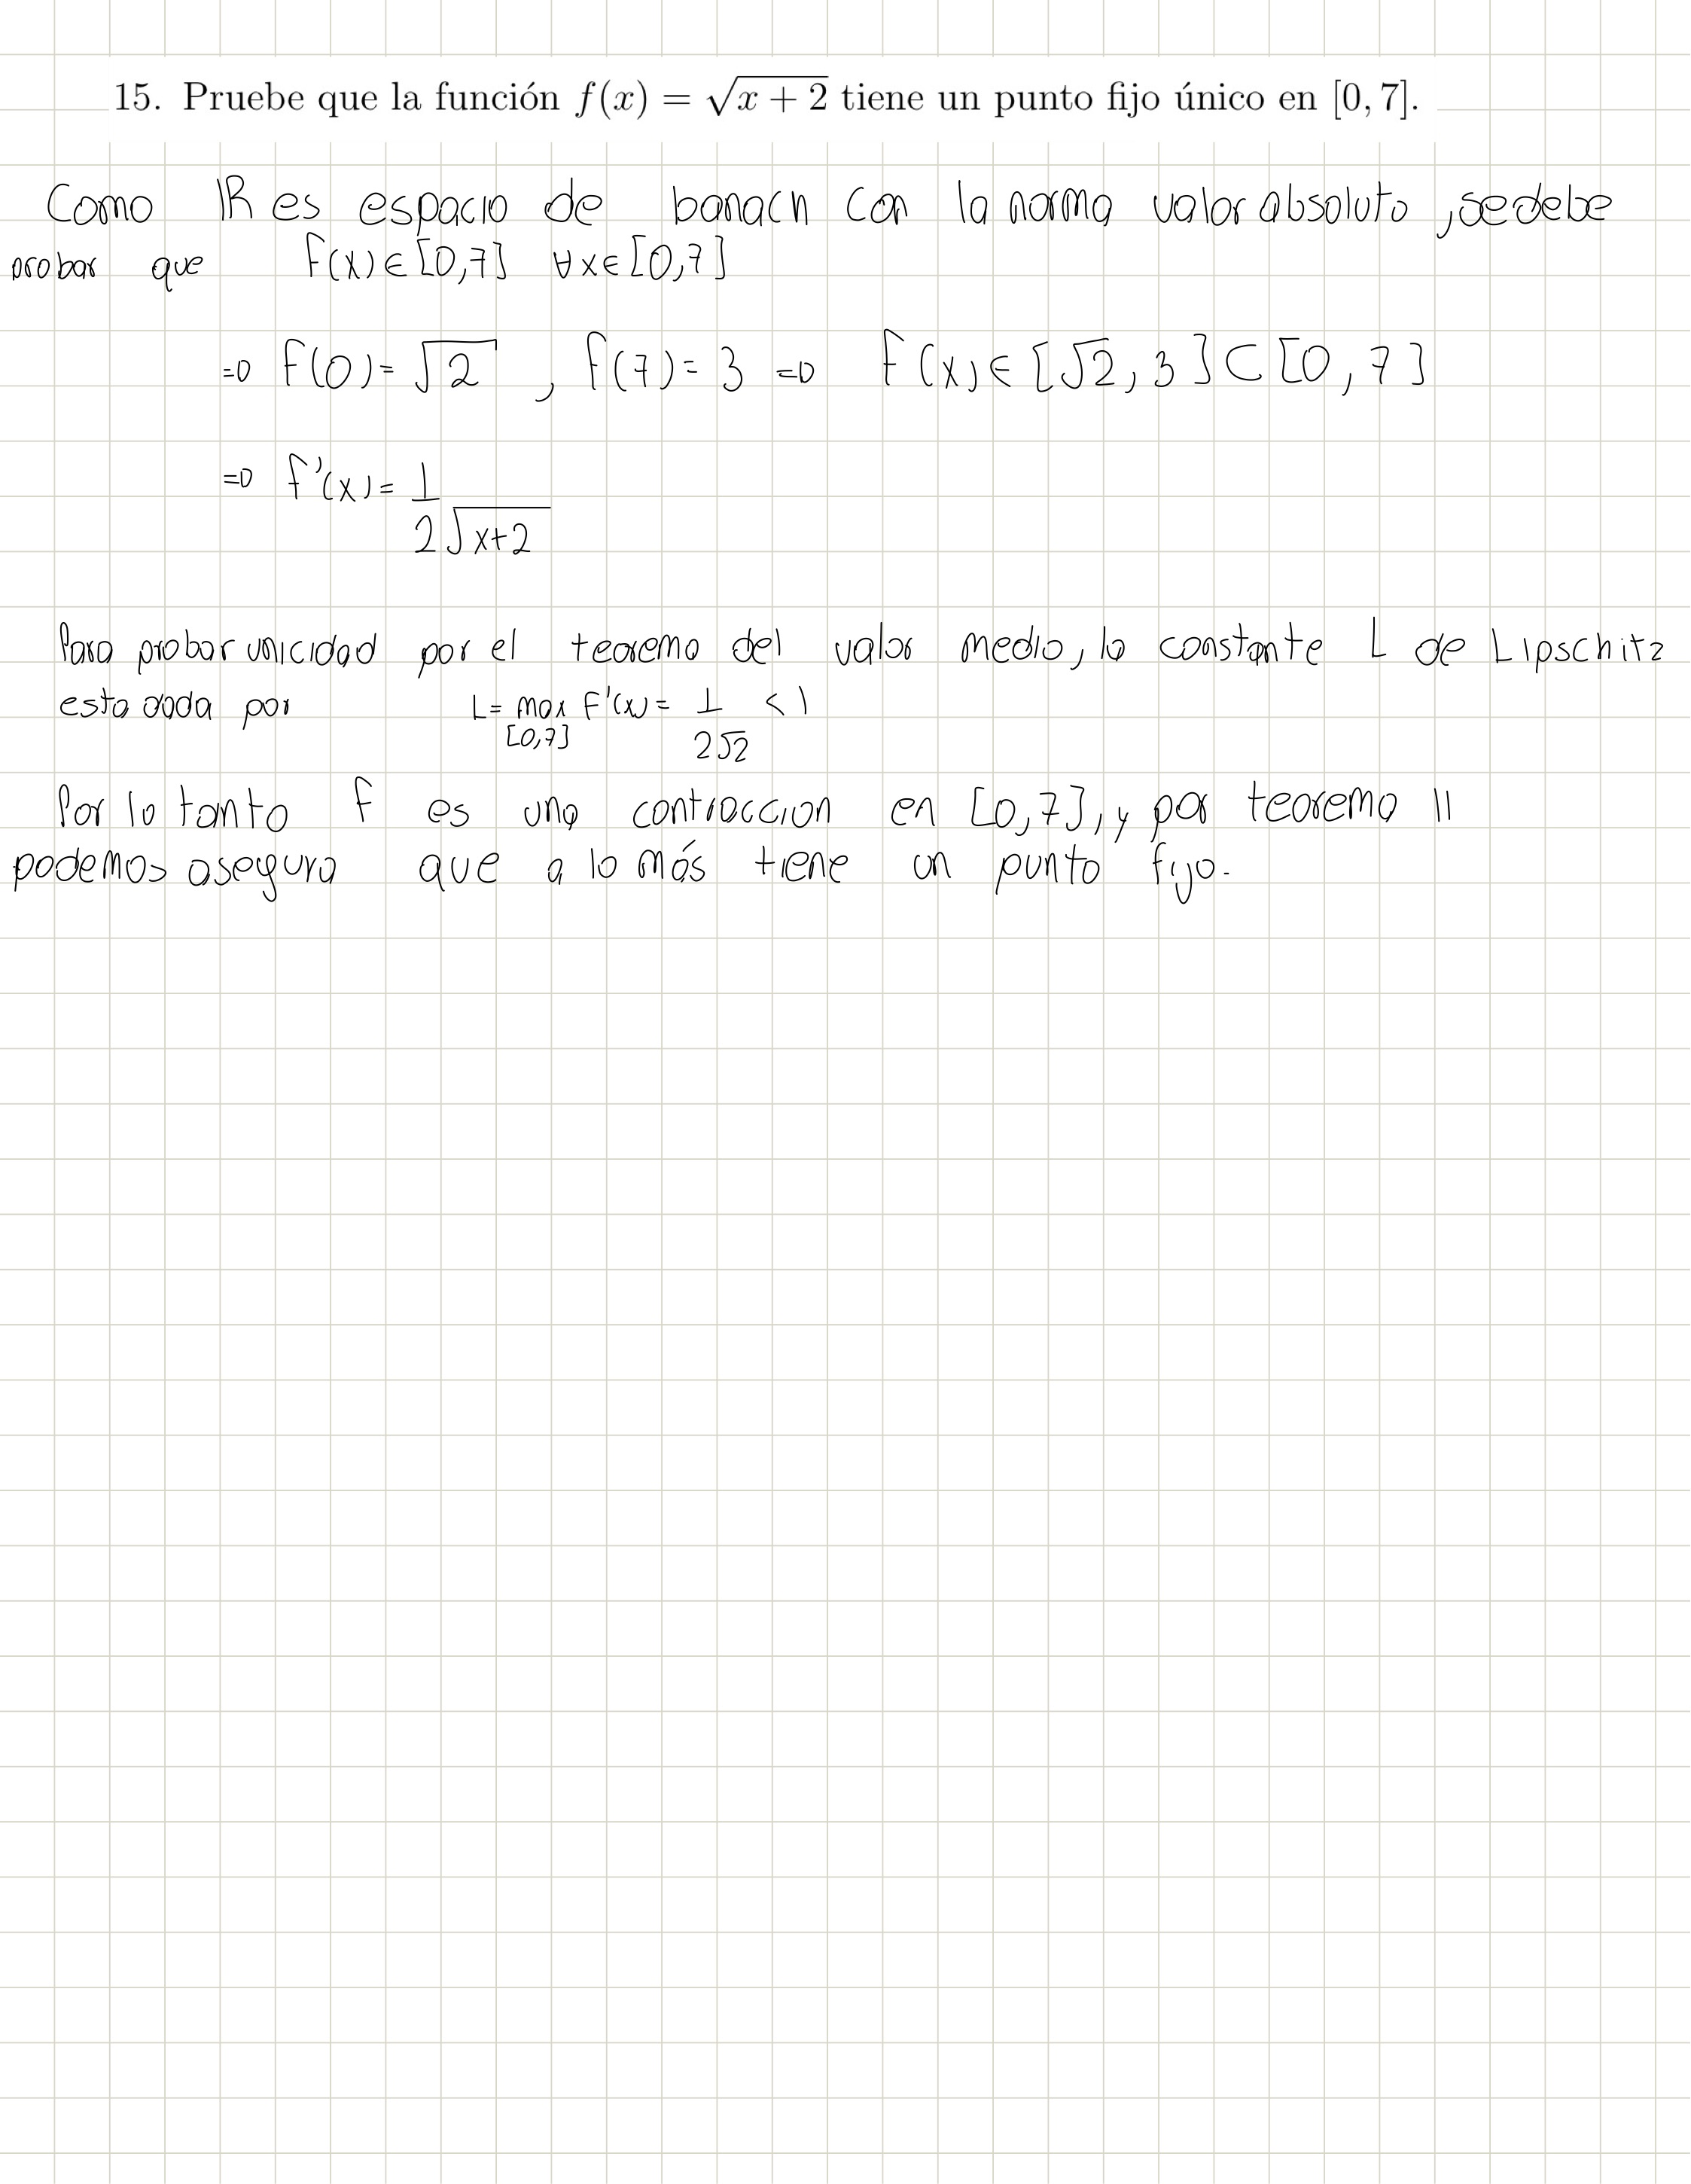 15. Pruebe que la función f(x) = √(x + 2) tiene un punto fijo único en [0, 7].
Como ℝ es espacio de banach con la norma valor absoluto, se debe
probar que f(x) ∈ [0,7] ∀x∈[0,7]
⇒ f(0)=√2 , f(7)=3 ⇒ f(x) ∈ [√2, 3] ⊂ [0,7]
⇒ f'(x) = 1/(2√(x+2))
Para probar unicidad por el teorema del valor medio, la constante L de Lipschitz
esta dada por L= max_[0,7] f'(x) = 1/(2√2) < 1
Por lo tanto f es una contraccion en [0,7], y por teorema 11
podemos asegura que a lo más tiene un punto fijo.